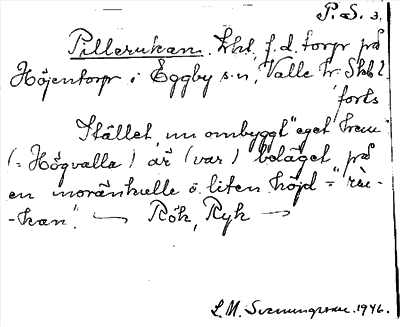 P. S. 3.
Pillerukan. Lht. f.d. torp på
Höjentorp i Eggby s:n, Valle hd Skbl.
forts
Stället, nu ombyggt "eget hem"
(= Högvalla) är (var) beläget på
en moränkulle o. liten höjd = "ru-
-kan". — Rök, Ryk —
L. M. Svenungsson. 1946.